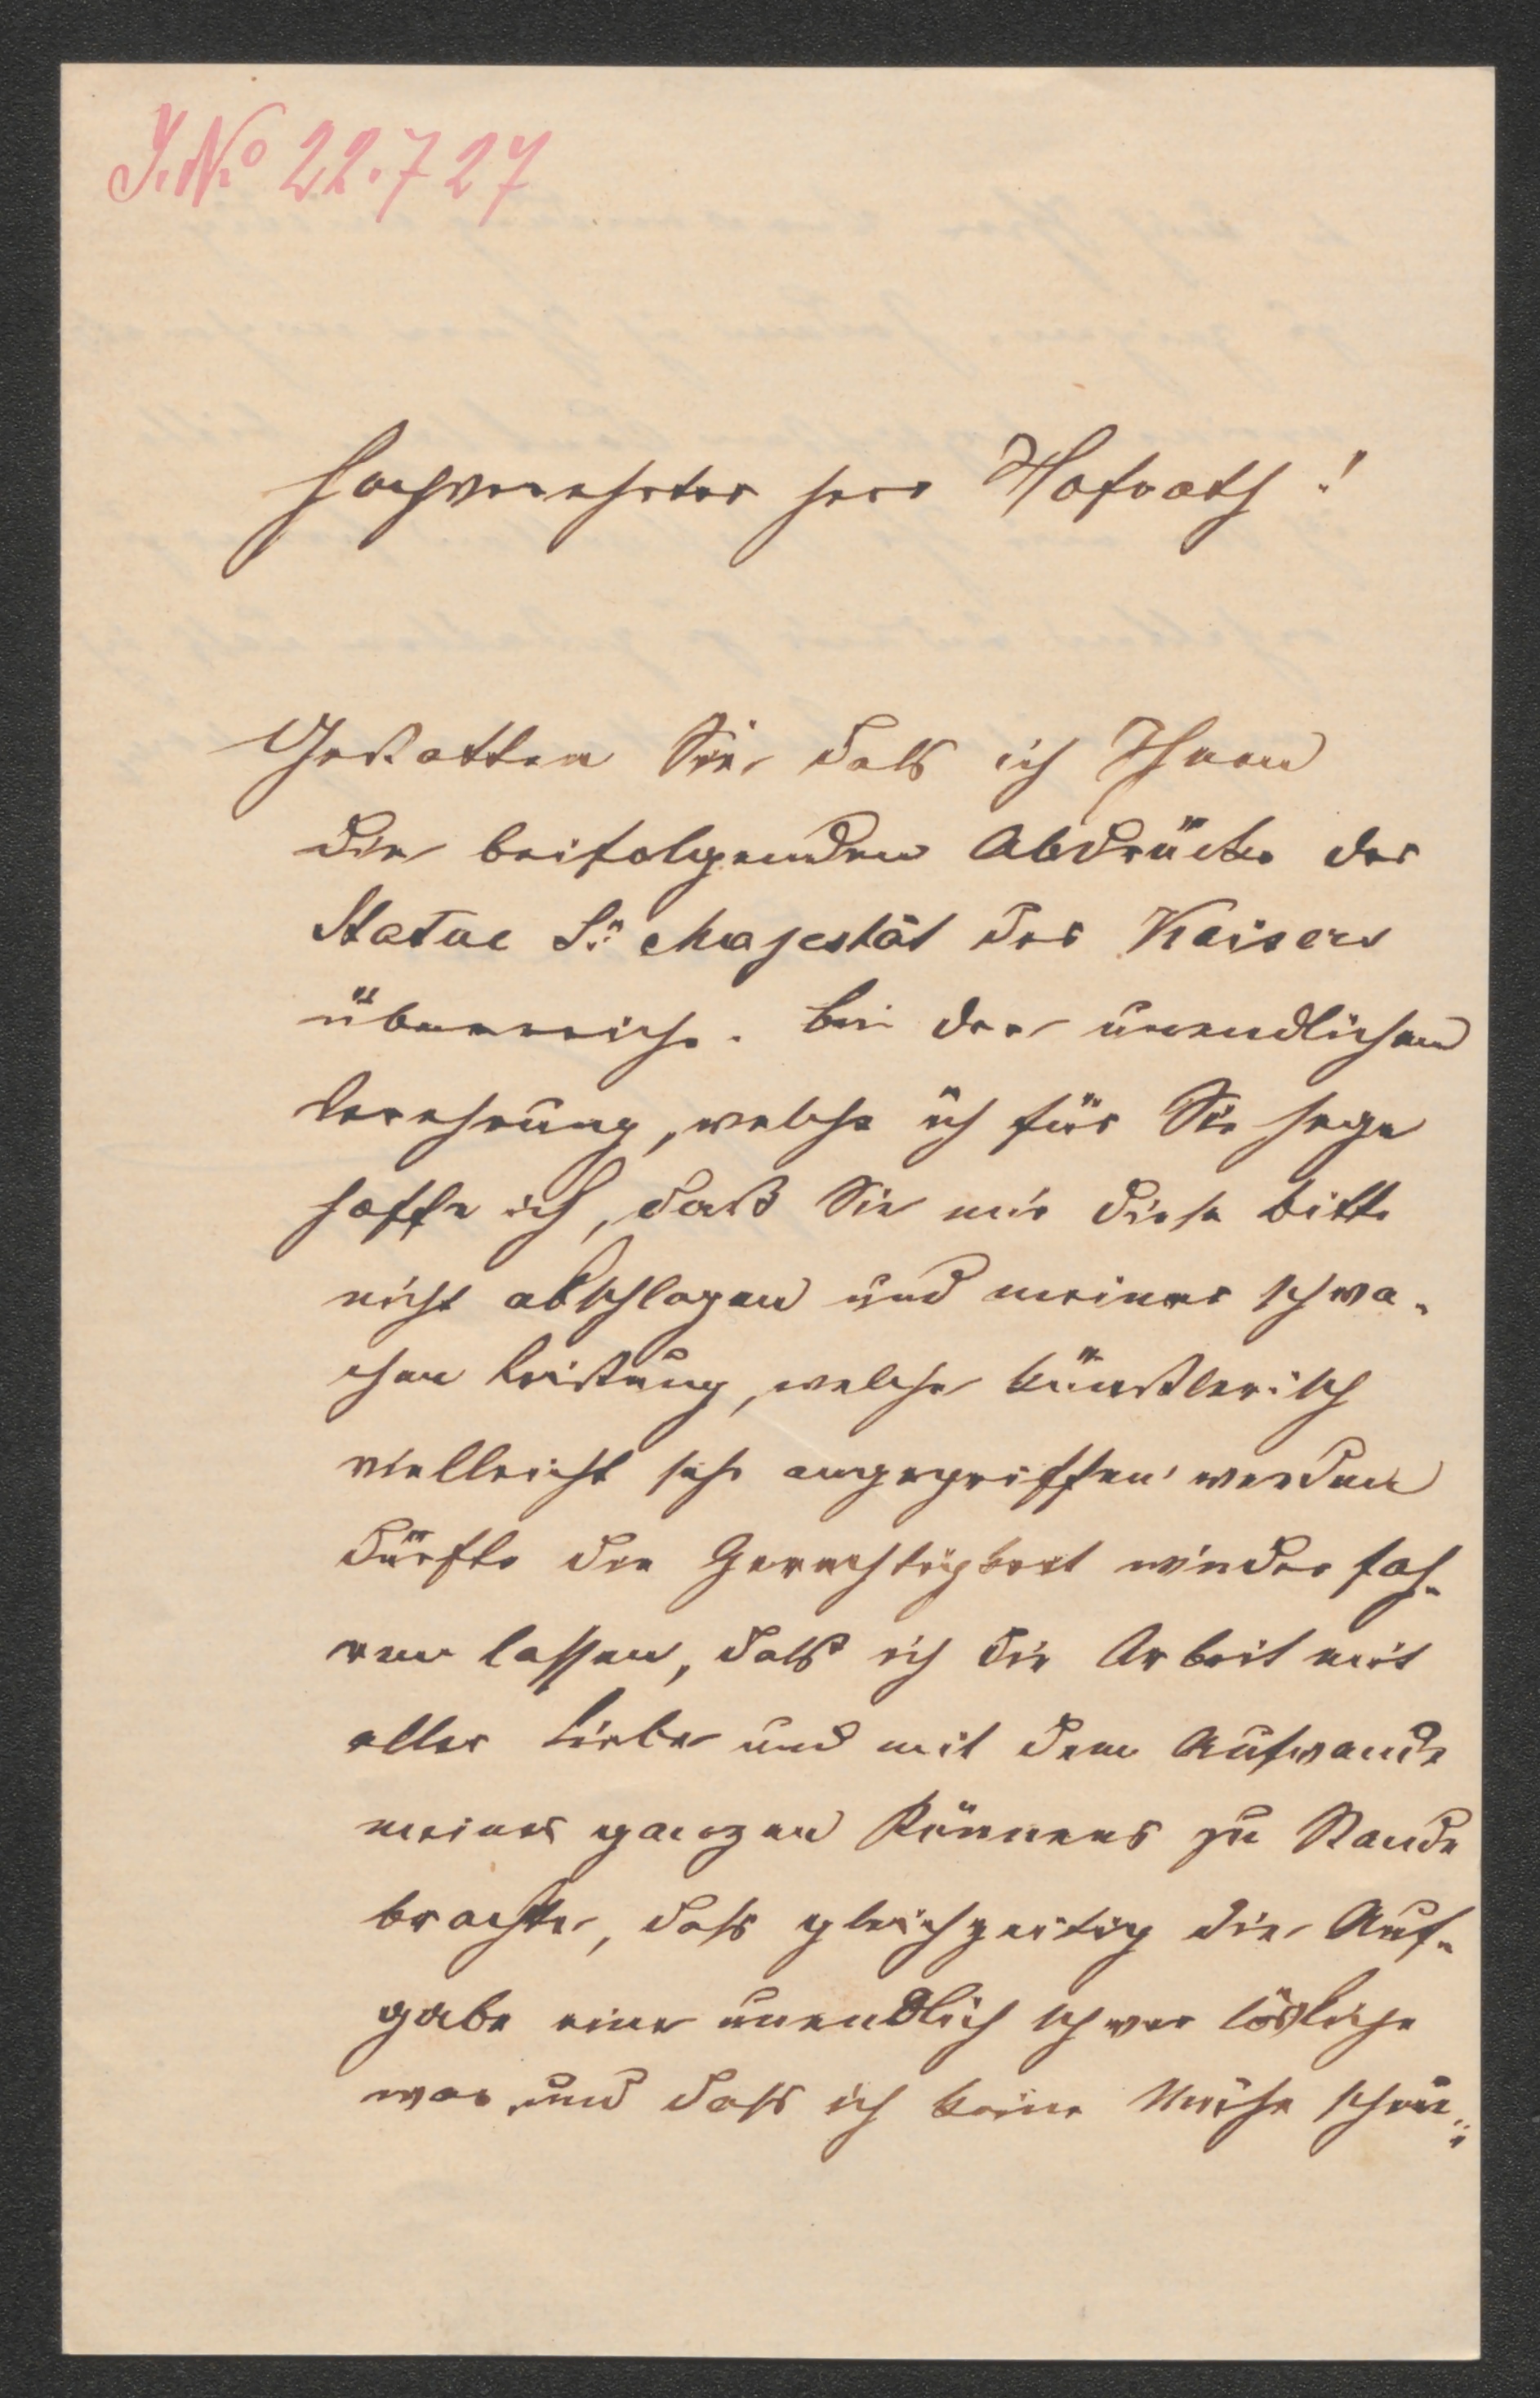 J. No 22.727
Hochverehrter Herr Hofrath!
Gestatten Sie, dass ich Ihnen
die beifolgenden Abdrücke der
Statue Sr Majestät des Kaisers
überreiche. Bei der unendlichen
Verehrung, welche ich für Sie hege
hoffe ich, daß Sie mir diese Bitte
nicht abschlagen und meiner schwa-
chen Leistung, welche künstlerisch
vielleicht sehr angegriffen werden
dürfte die Gerechtigkeit wiederfah-
ren lassen, dass ich die Arbeit mit
aller Liebe und mit dem Aufwande
meines ganzen Könnens zu Stande
brachte, dass gleichzeitig die Auf-
gabe eine unendlich schwer lösliche
war, und dass ich keine Mühe scheu-